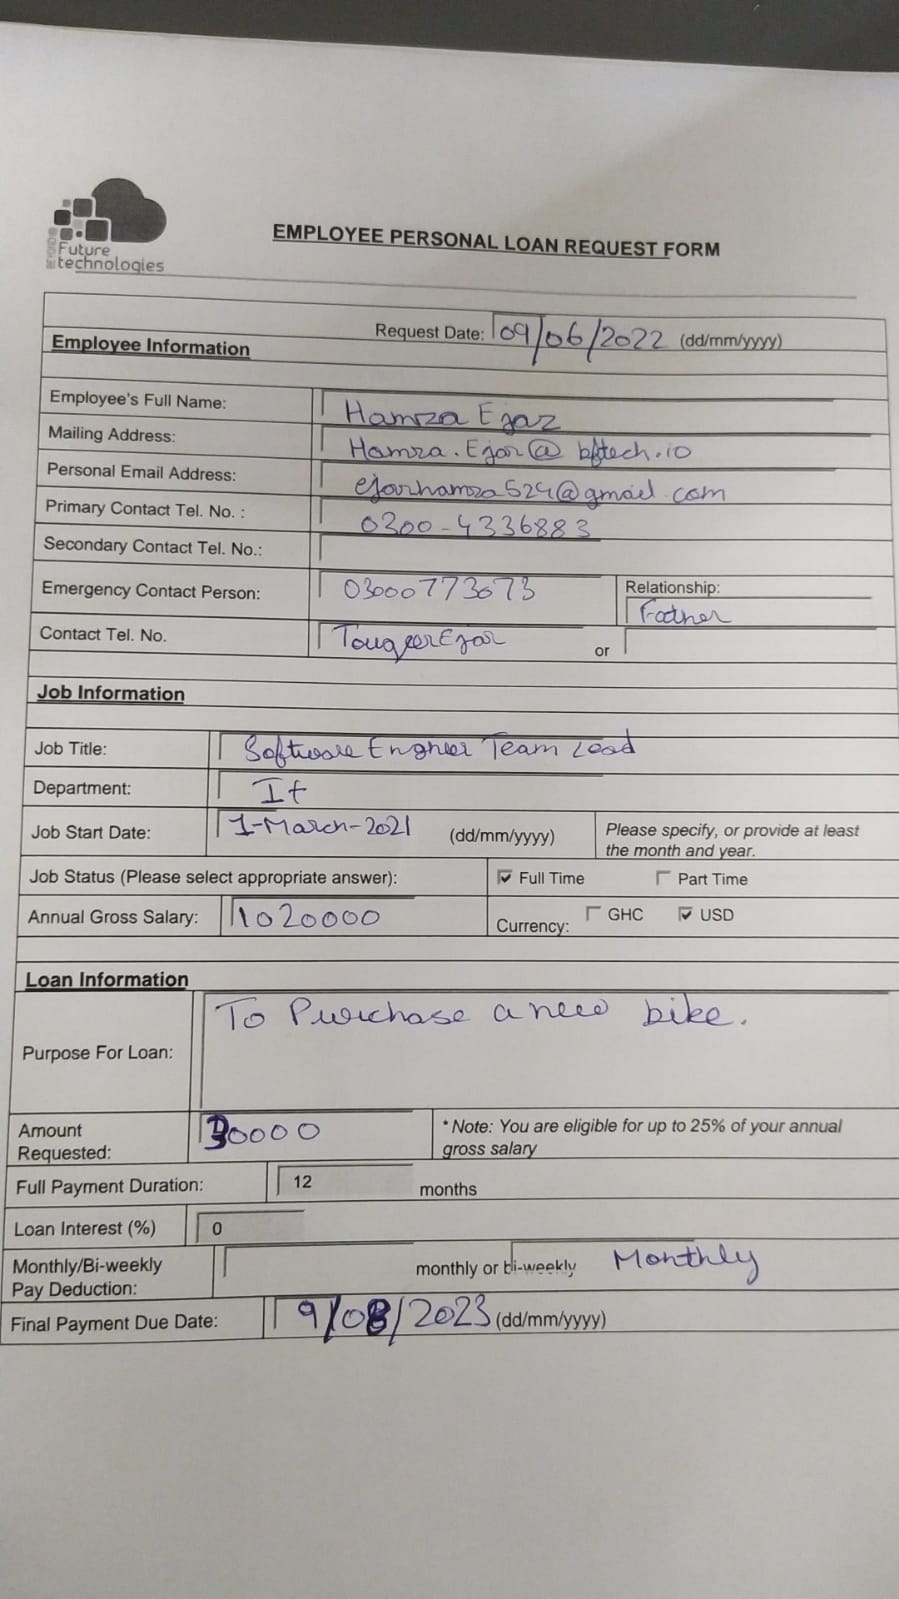 Future
technologies
EMPLOYEE PERSONAL LOAN REQUEST FORM
Request Date: 09/06/2022 (dd/mm/yyyy)
Employee Information
Employee's Full Name: Hamza Ejaz
Mailing Address: Hamza.Ejaz@bftech.io
Personal Email Address: ejazhamza524@gmail.com
Primary Contact Tel. No. : 0300-4336883
Secondary Contact Tel. No.:
Emergency Contact Person: 03000773073 Relationship: Father
Contact Tel. No. Tougeer Ejaz or
Job Information
Job Title: Software Engineer Team Lead
Department: It
Job Start Date: 1-March-2021 (dd/mm/yyyy) Please specify, or provide at least
the month and year.
Job Status (Please select appropriate answer): Full Time Part Time
Annual Gross Salary: 1020000 Currency: GHC USD
Loan Information
Purpose For Loan: To Purchase a new bike.
Amount
Requested: 30000 * Note: You are eligible for up to 25% of your annual
gross salary
Full Payment Duration: 12 months
Loan Interest (%) 0
Monthly/Bi-weekly
Pay Deduction: monthly or bi-weekly Monthly
Final Payment Due Date: 9/08/2023 (dd/mm/yyyy)